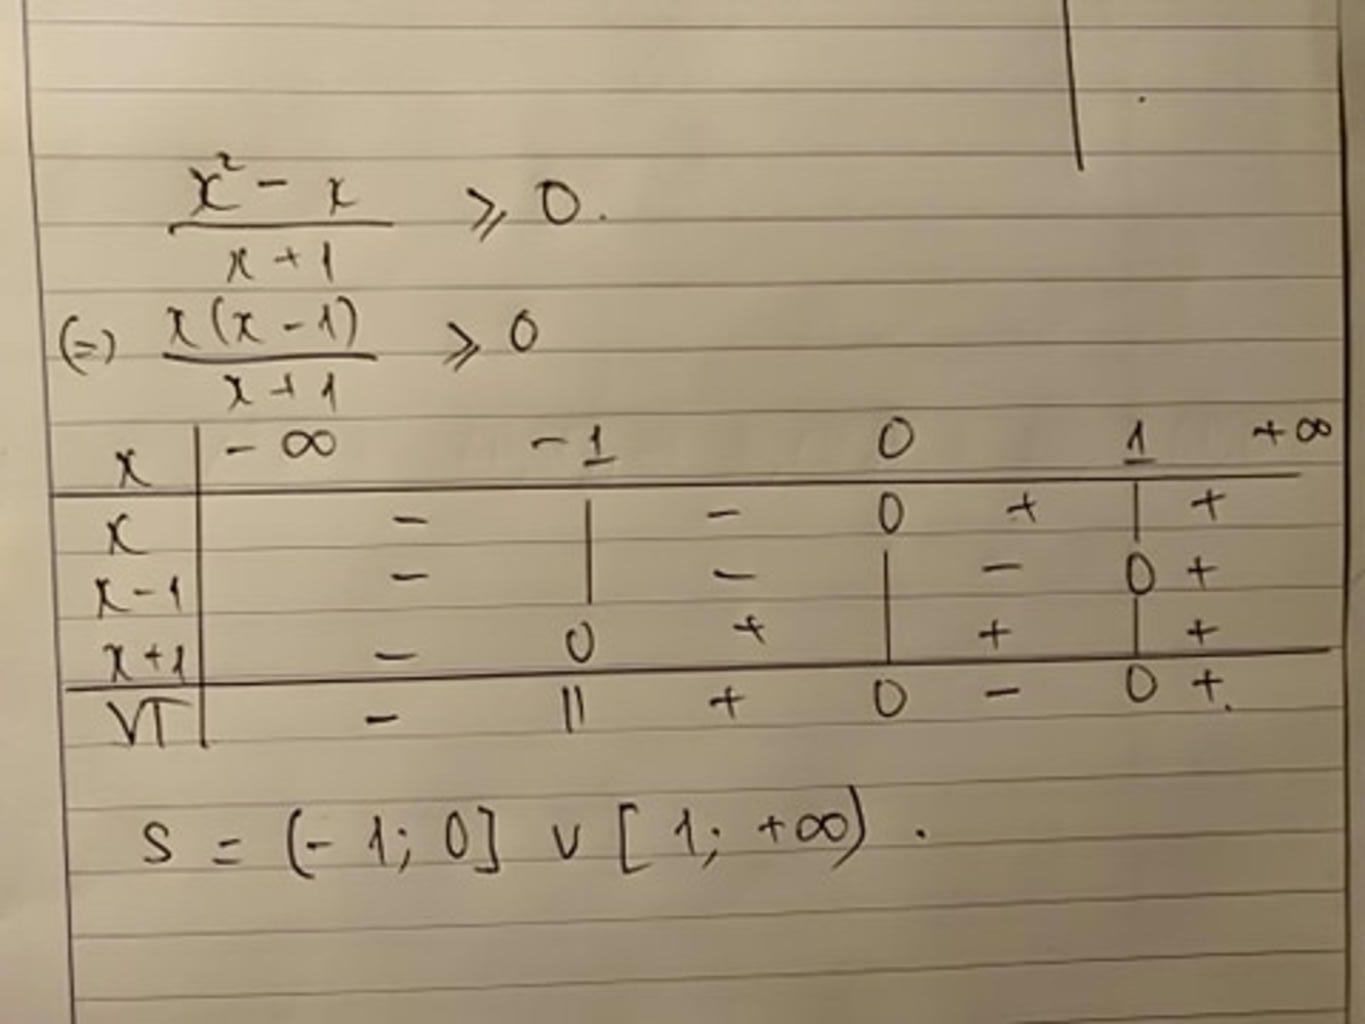 x² - x / x + 1 ⩾ 0.
(=) x(x - 1) / x + 1 ⩾ 0
x | - ∞ -1 0 1 +∞
x | - | - 0 + | +
x-1 | - | - | - 0 +
x+1 | - 0 + | + | +
VT | - || + 0 - 0 +.
S = (- 1; 0] ∪ [1; +∞).